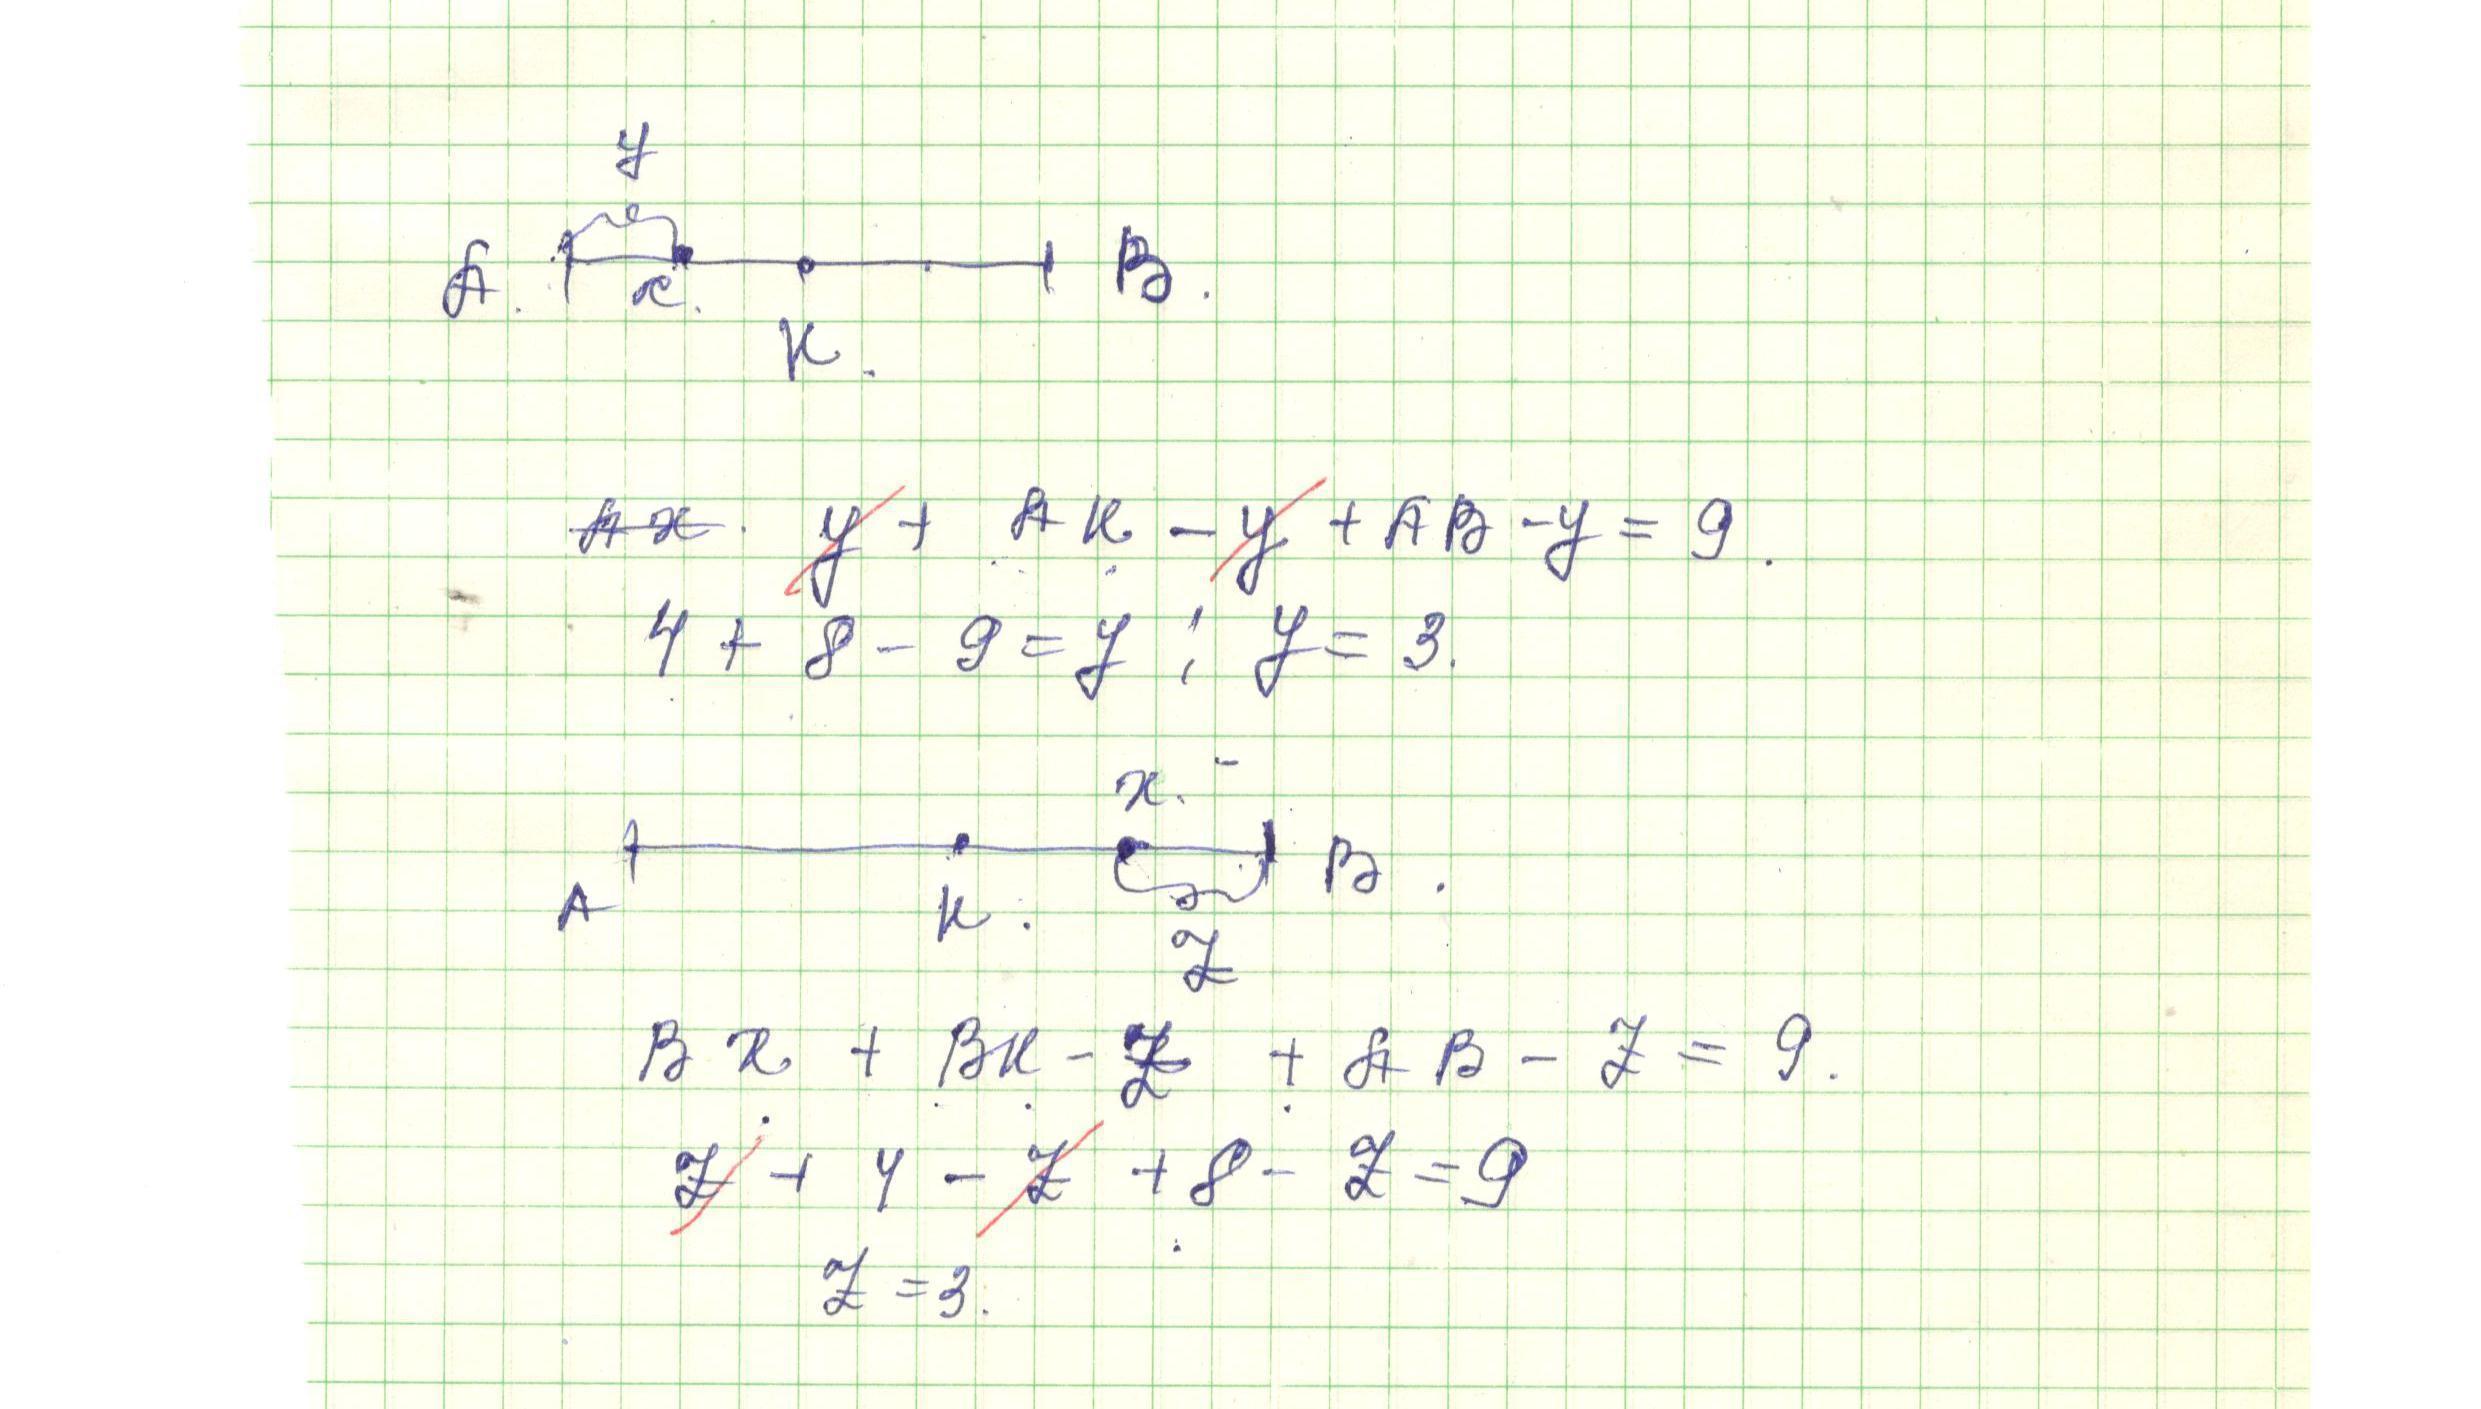 y
A. x. B.
K.
Ax. y + AK - y + AB - y = 9.
4 + 8 - 9 = y ; y = 3.
x.
A K. B.
Z
Bx + BK - Z + AB - Z = 9.
Z + 4 - Z + 8 - Z = 9
Z = 3.